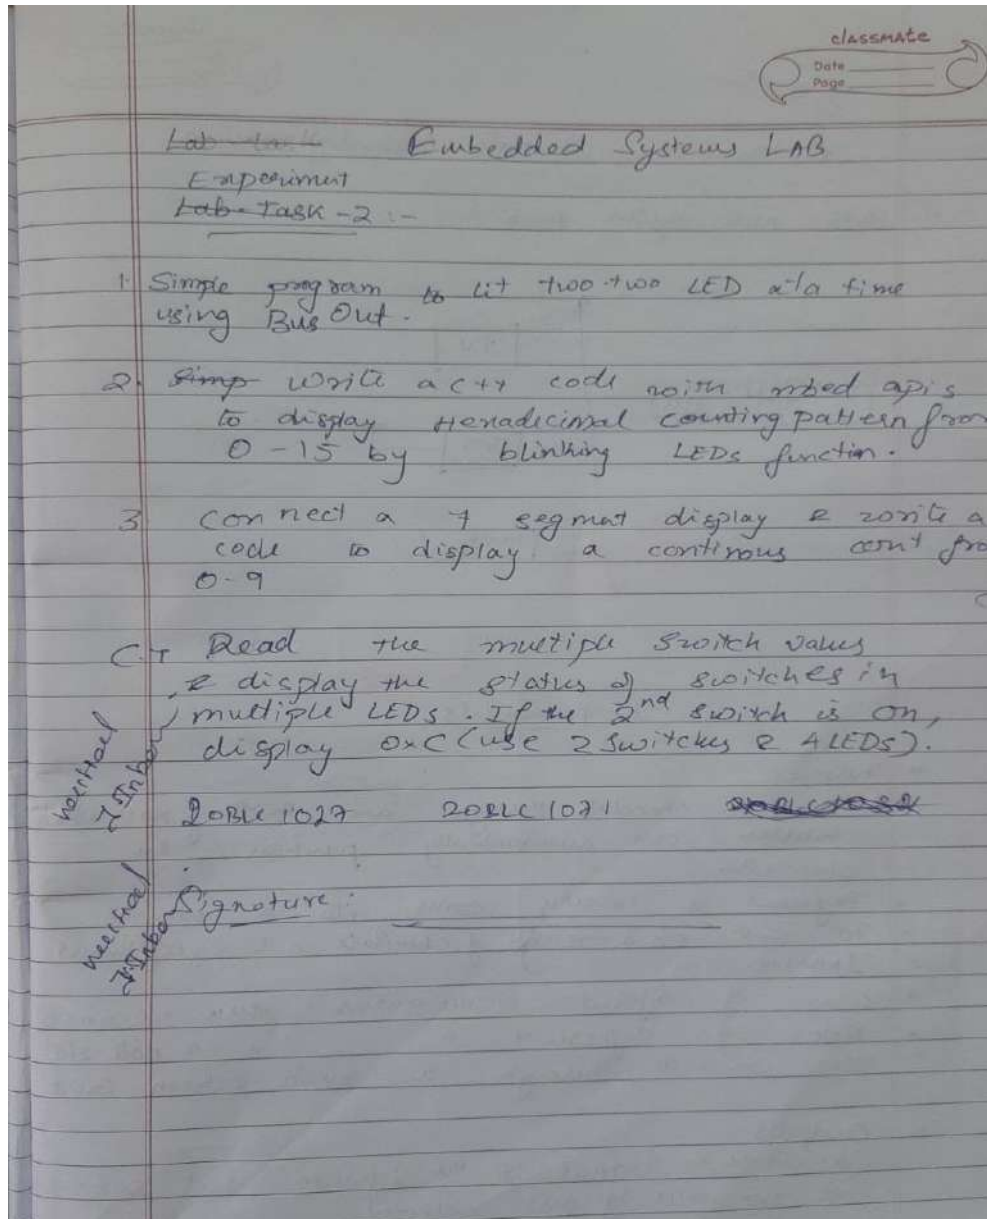 classmate
Date
Page
Lab task Embedded Systems LAB
Experiment
Lab-Task-2 :-
1. Simple program to lit two-two LED at a time
using Bus Out.
2. Simp Write a c++ code with mbed apis
to display Hexadecimal counting pattern from
0-15 by blinking LEDs function.
3 Connect a 7 segment display & write a
code to display a continous count fro
0-9
C.T Read the multiple switch values
& display the status of switches in
multiple LEDs. If the 2nd switch is on,
display 0xC (use 2 switches & 4 LEDs).
20BLC1027 20BLC1071
Signature: